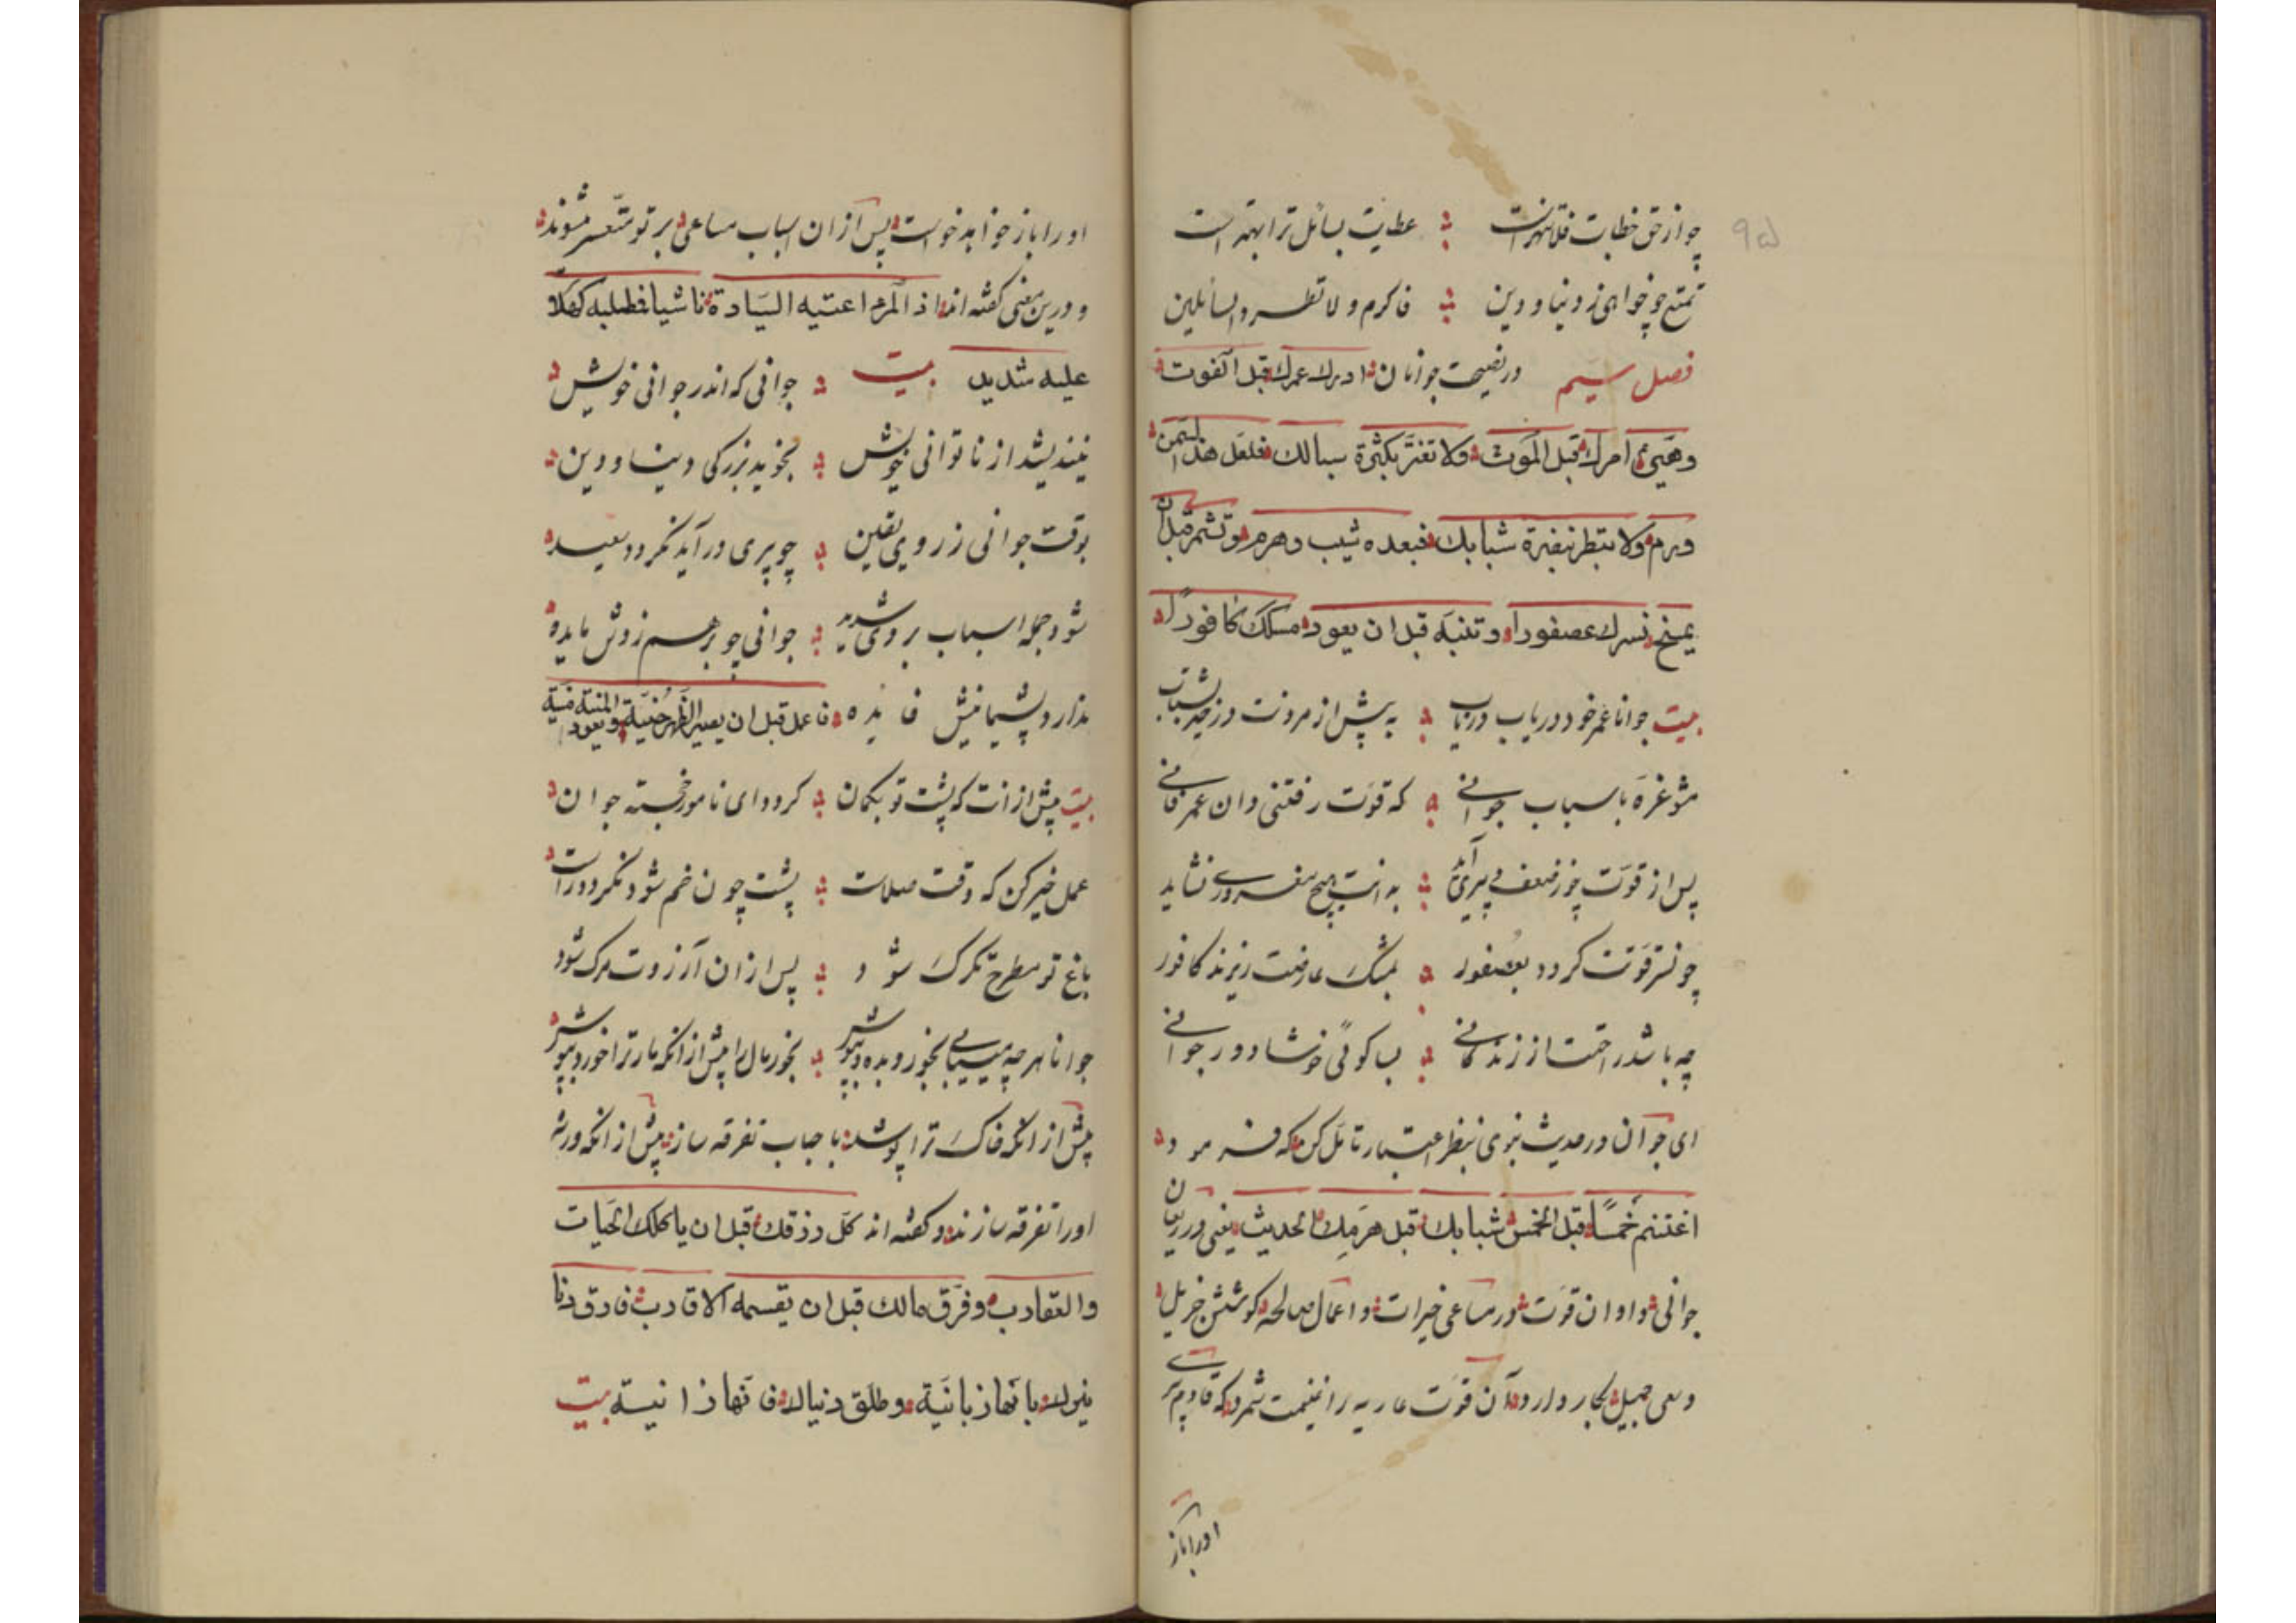 ۹۵
چو از حق خطابت فلا تنهر است ؞ عطایت بسائل ترا بهتر است
تمتع چو خواهی ز دنیا و دین ؞ فاکرم و لا تطرد السائلین
فصل سیم در نصیحت جوانان ادرك عمرك قبل الفوت
وهیئ امرك قبل الموت ولا تغتر بكثرة سبالك فلعل هذا السمن
ورم ولا تنظر بنضرة شبابك فبعده شیب وهرم وتشمر قبل ان
یمسخ نسرك عصفورا وتنبه قبل ان یعود مسكك كافورا
بیت جوانا عمر خود دریاب دریاب ؞ به پیش از مردنت در عهد شباب
مشو غره باسباب جوانی ؞ که قوت رفتنی دان عمر فانی
پس از قوت چو ضعف پیری آید ؞ به انت هیچ مغروری نشاید
چو نسر قوتت کردد بعصفور ؞ بمشک عارضت ریزند کافور
چه باشد راحت از زندکانی ؞ بسا کوئی خوشا دور جوانی
ای جوان در حدیث نبوی بنظر اعتبار تامل کن که فرمود
اغتنم خمسًا قبل الخمس شبابك قبل هرمك الحدیث یعنی در ریعان
جوانی و اوان قوت در مساعی خیرات و اعمال صالحه کوشش جزیل
و سعی جمیل بکار دارد و آن قوت عاریه را غنیمت شمرد که قادم پیری
اورا باز
اورا باز خواهد خواست پس از ان اسباب مساعی بر تو متعسر میشوند
و درین معنی کفته اند اذ المرء اعتیه السیادة ناشیا فطلبه كهلا
علیه شدید بیت ؞ جوانی که اندر جوانی خویش
نیندیشد از ناتوانی خویش ؞ نجوید بزرکی دنیا و دین
بوقت جوانی ز روی یقین ؞ چو پیری در آید نکردد سعید
شود جمله اسباب بر وی شدید ؞ جوانی چو بر هم زوش مایده
ندارد پشیمانیش فایده فاعمل قبل ان یصیر الظهر حنیة ویعود المنیة منیة
بیت پیش از انت که پشت تو بکمان ؞ کردد ای نامور خجسته جوان
عمل خیر کن که وقت صلات ؞ پشت چون خم شود نکردد راست
باغ تو مطرح تکرک شود ؞ پس از ان آرزوت مرک شود
جوانا هر چه می یابی بخور و بده و بپوش ؞ بخور مال را پیش از انکه مار ترا خورد بپوش
پیش از انکه خاک ترا پوشد با حباب تفرقه ساز پیش از انکه ورثه
اورا تفرقه سازند و کفته اند كل رزقك قبل ان یاكلك الحیات
والعقارب وفرق مالك قبل ان یقسمه الاقارب فارق دنیا
بانها زبانیة وطلق دنیاك فانها زانیة بیت